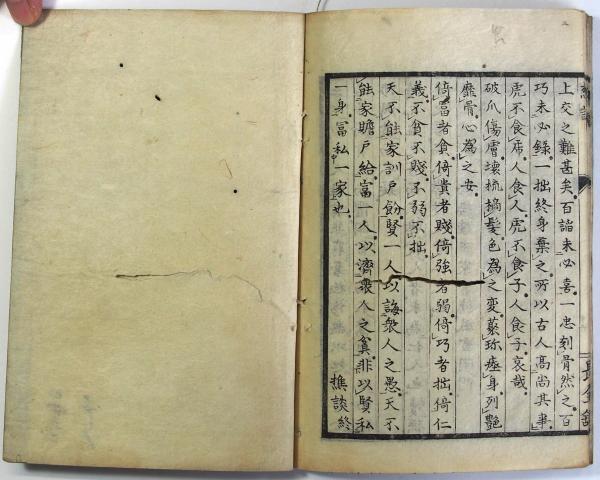 上交之難甚矣百諂未必喜一忠刻骨然之百
巧未必錄一拙終身棄之所以古人高尚其事
虎不食虎人食人虎不食子人食子哀哉
破爪傷膚壞梳摘髮色為之變蒙珎瘞身列艷
靡骨心為之安
倚富者貧倚貴者賤倚強者弱倚巧者拙倚仁
義不貧不賤不弱不拙
天不能家訓戶飭賢一人以誨衆人之愚天不
能家贍戶給富一人以濟衆人之窶非以賢私
一身富私一家也 樵談終